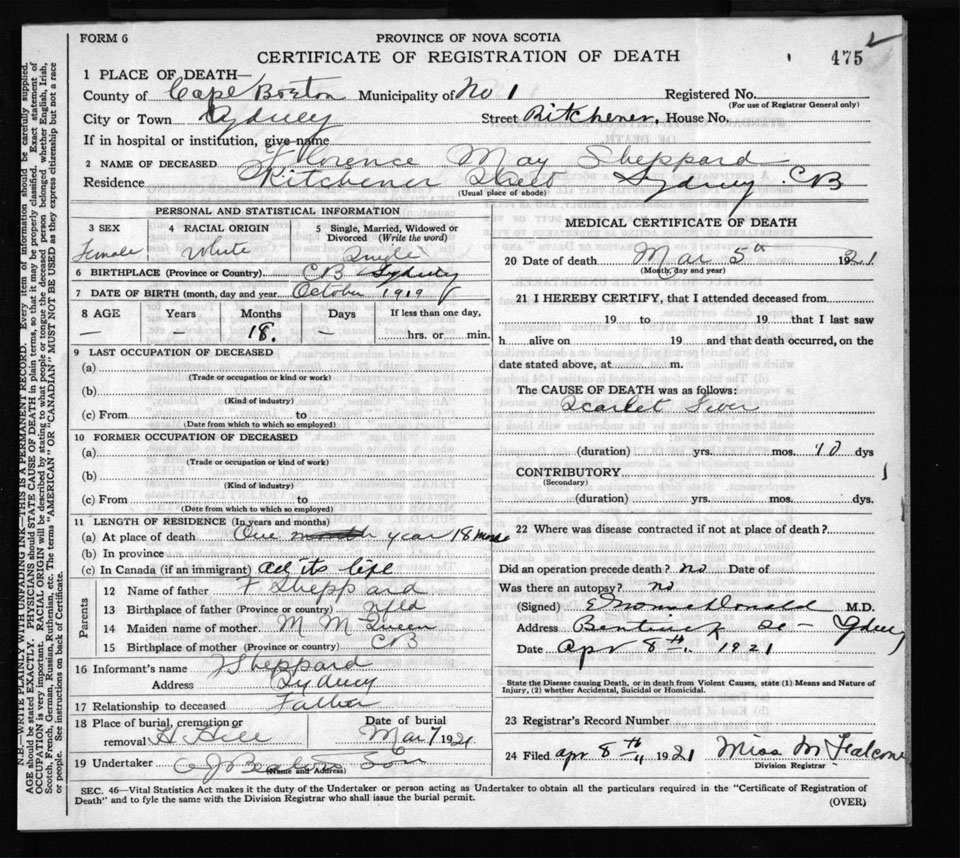 FORM 6
PROVINCE OF NOVA SCOTIA
CERTIFICATE OF REGISTRATION OF DEATH
475
1 PLACE OF DEATH—
County of Cape Breton Municipality of No 1 Registered No.
(For use of Registrar General only)
City or Town Sydney Street Kitchener, House No.
If in hospital or institution, give name
2 NAME OF DECEASED Florence May Sheppard
Residence Kitchener Street Sydney CB
(Usual place of abode)
PERSONAL AND STATISTICAL INFORMATION
3 SEX 4 RACIAL ORIGIN 5 Single, Married, Widowed or Divorced (Write the word)
Female White Single
6 BIRTHPLACE (Province or Country) CB Sydney
7 DATE OF BIRTH (month, day and year October 1919
8 AGE Years Months Days If less than one day,
— — 18. — hrs. or min.
9 LAST OCCUPATION OF DECEASED
(a)
(Trade or occupation or kind or work)
(b)
(Kind of industry)
(c) From to
(Date from which to which so employed)
10 FORMER OCCUPATION OF DECEASED
(a)
(Trade or occupation or kind of work)
(b)
(Kind of industry)
(c) From to
(Date from which to which so employed)
11 LENGTH OF RESIDENCE (In years and months)
(a) At place of death One month year 18 mos
(b) In province
(c) In Canada (if an immigrant) all its life
Parents
12 Name of father F Sheppard
13 Birthplace of father (Province or country) Nfld
14 Maiden name of mother M M Queen
15 Birthplace of mother (Province or country) CB
16 Informant's name F Sheppard
Address Sydney
17 Relationship to deceased Father
18 Place of burial, cremation or removal H Hill Date of burial Mar 7 1921
19 Undertaker A J Beaton & Son
(Name and Address)
MEDICAL CERTIFICATE OF DEATH
20 Date of death Mar 5th 1921
(Month, day and year)
21 I HEREBY CERTIFY, that I attended deceased from
19 to 19 that I last saw
h alive on 19 and that death occurred, on the
date stated above, at m.
The CAUSE OF DEATH was as follows:
Scarlet Fever
(duration) yrs. mos. 10 dys
CONTRIBUTORY
(Secondary)
(duration) yrs. mos. dys.
22 Where was disease contracted if not at place of death?
Did an operation precede death? no Date of
Was there an autopsy? no
(Signed) M.D.
Address Bentinck St – Sydney
Date Apr 8th 1921
State the Disease causing Death, or in death from Violent Causes, state (1) Means and Nature of
Injury, (2) whether Accidental, Suicidal or Homicidal.
23 Registrar's Record Number
24 Filed Apr 8th 1921 Miss M Falconer
Division Registrar
SEC. 46—Vital Statistics Act makes it duty of the Undertaker or person acting as Undertaker to obtain all the particulars required in the "Certificate of Registration of
Death" and to fyle the same with the Division Registrar who shall issue the burial permit.
(OVER)
N.B.—WRITE PLAINLY WITH UNFADING INK—THIS IS A PERMANENT RECORD. Every item of information should be carefully supplied.
AGE should be stated EXACTLY. PHYSICIANS should STATE CAUSE OF DEATH in plain terms, so that it may be properly classified. Exact statement of
OCCUPATION is very important. RACIAL ORIGIN will be described by stating to what people or tongue the deceased person belonged whether English, Irish,
Scotch, French, German, Russian, Ruthenian, etc. The terms "AMERICAN" OR "CANADIAN" MUST NOT BE USED as they express citizenship but not a race
or people. See instructions on back of Certificate.